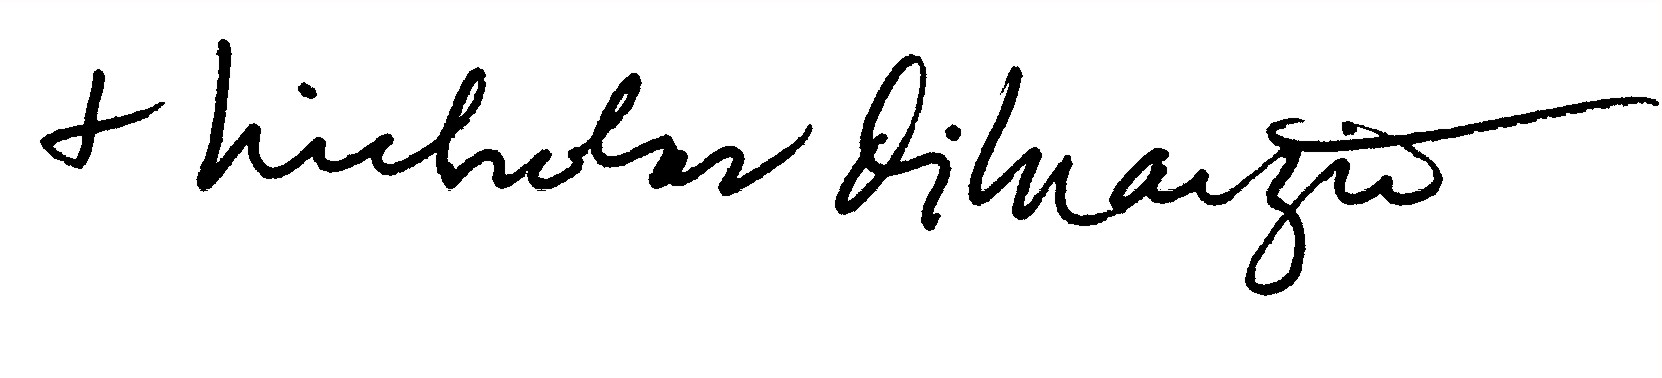 + Nicholas DiMarzio